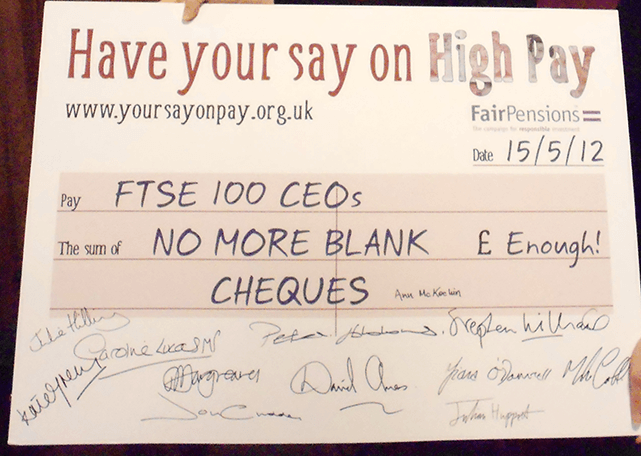 Have your say on High Pay
www.yoursayonpay.org.uk
FairPensions
The campaign for responsible investment
Date 15/5/12
Pay FTSE 100 CEOs
The sum of NO MORE BLANK £ Enough!
CHEQUES Ann McKechin
Julie Hilling
Caroline Lucas MP
Stephen Williams
Kate Green
David
Julian Huppert